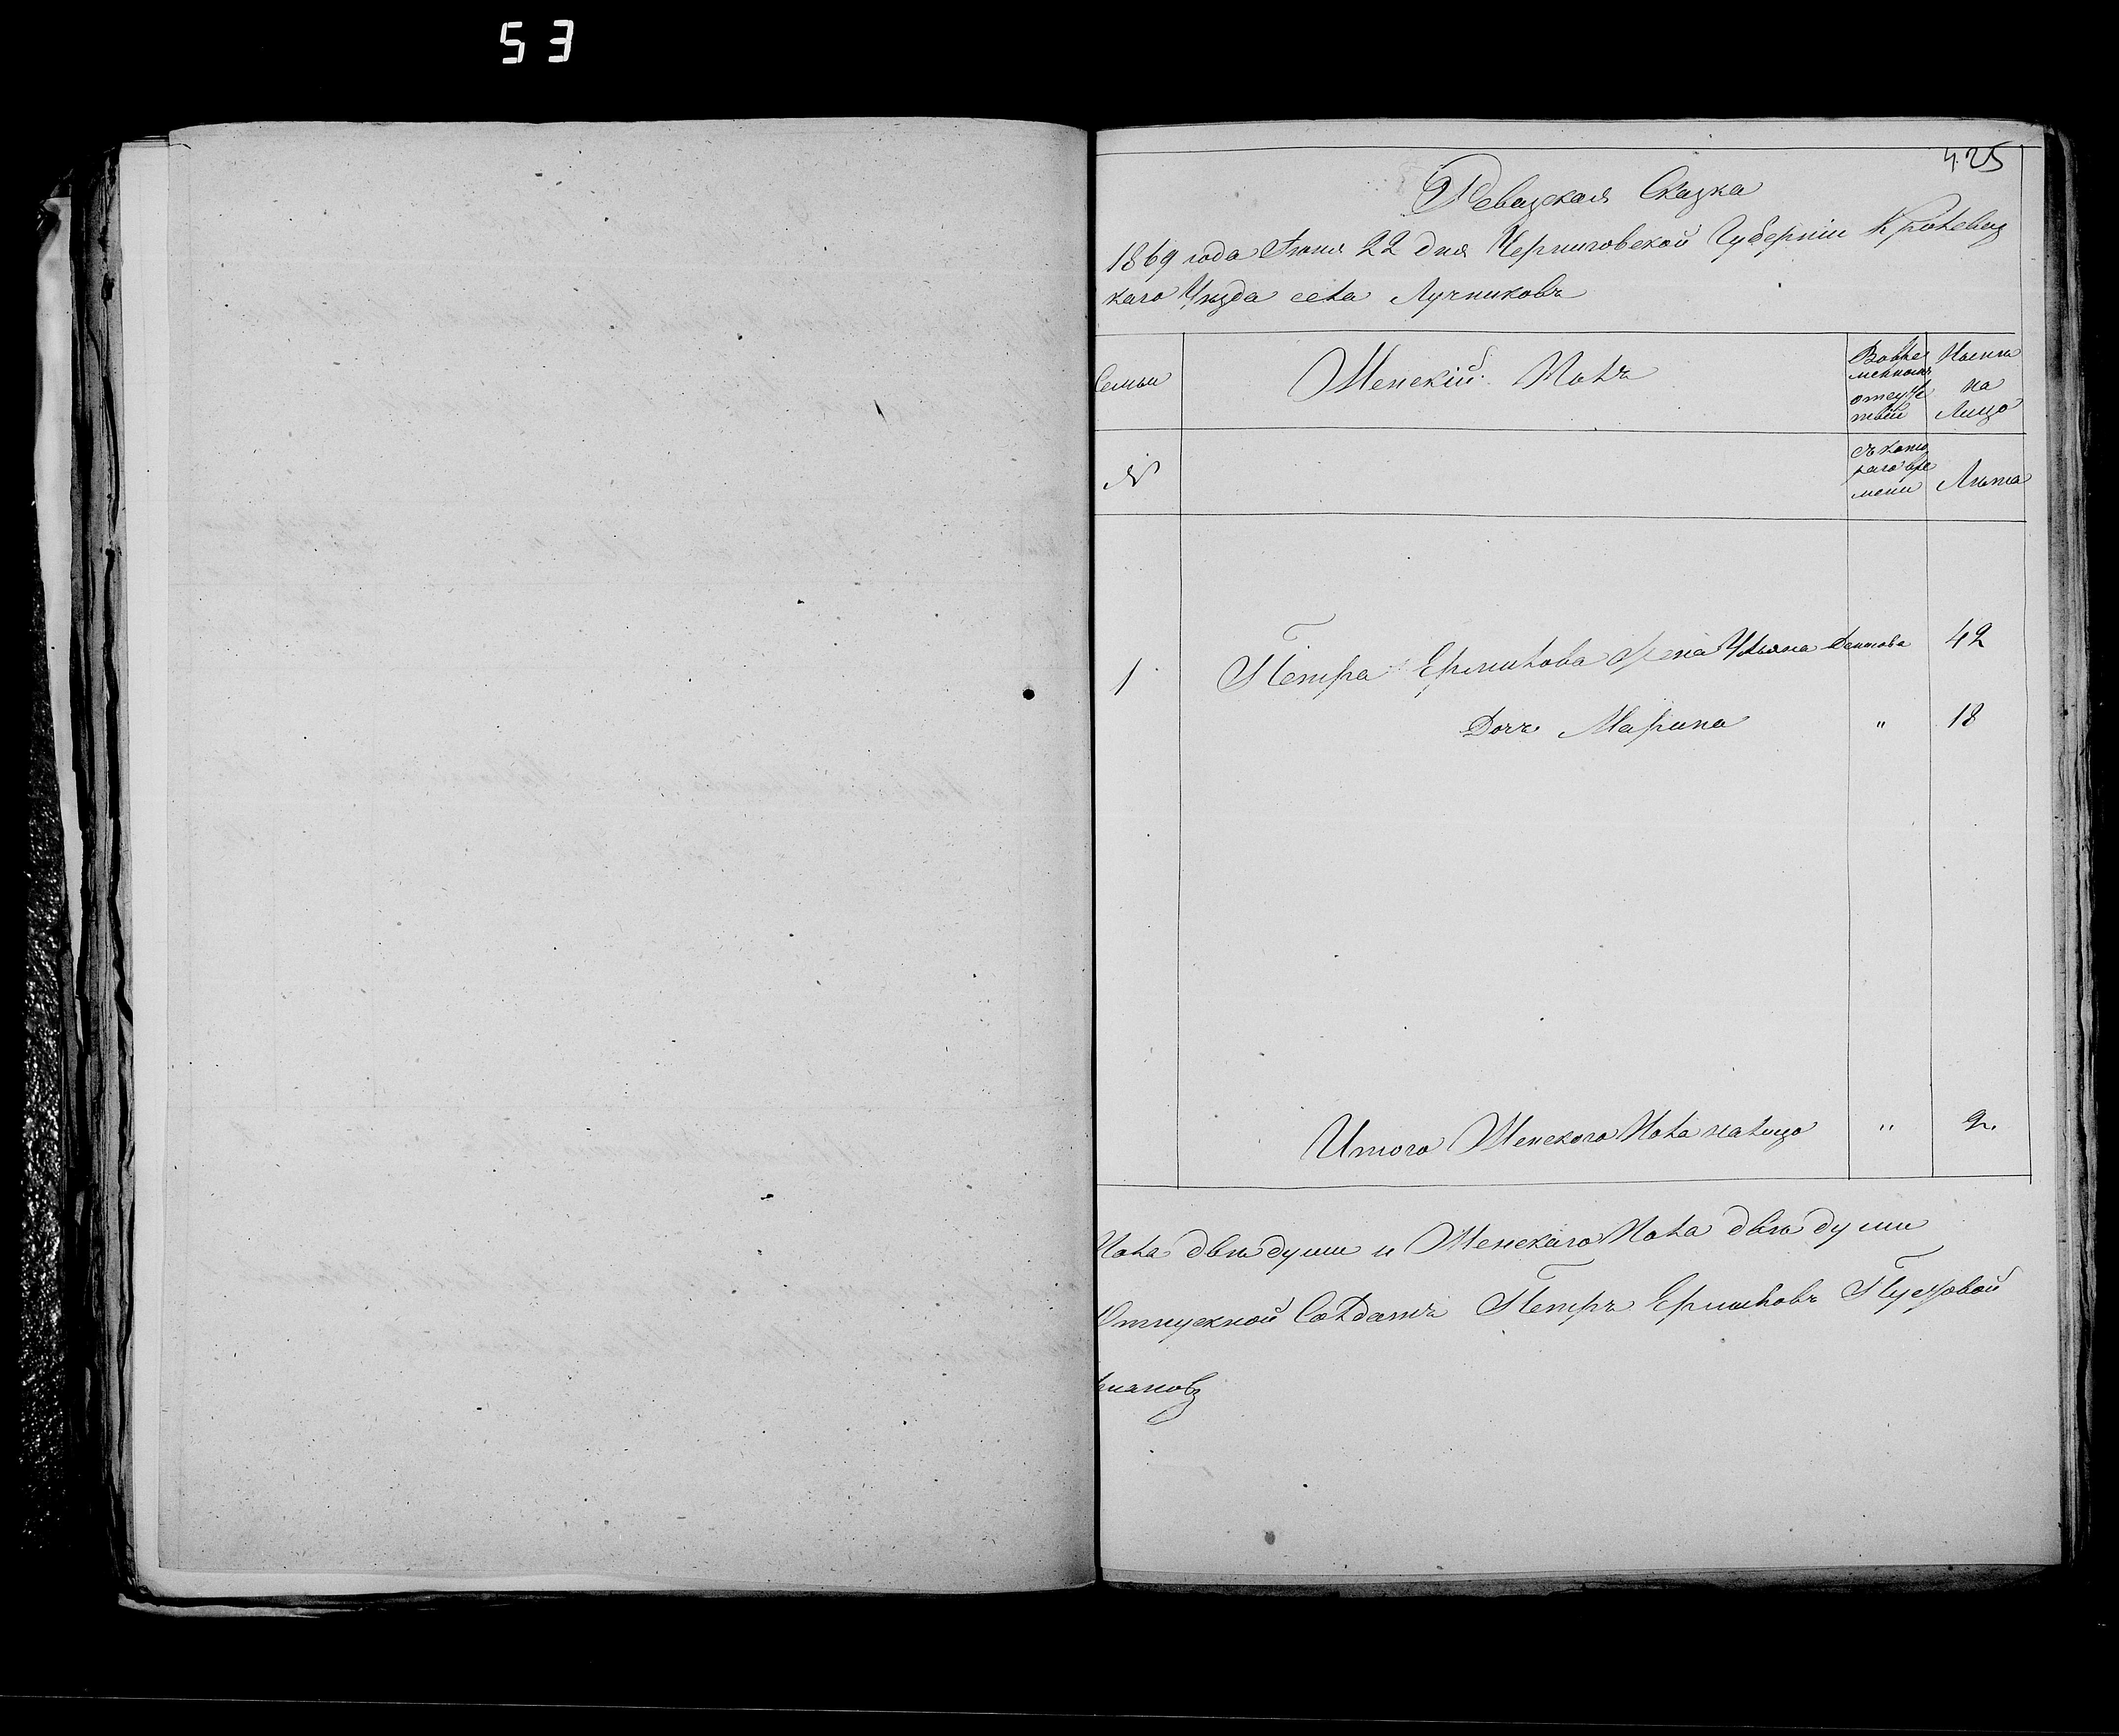 53
425
Ревизская Сказка
1869 года Июня 22 дня Черниговской Губерніи Кролевец
каго Уѣзда села Лучниковъ
Семьи
Женскій Полъ
Вовре
менномъ
отсутс
твіи
Ныеть
на
Лицо
№
съ кото
раго вре
мени
Лѣта
1
Петра Ермилова жена Ульяна Данилова 42
Дочь Марина " 18
Итого Женскаго Пола налицо " 2.
Пола двѣ души и Женскаго Пола двѣ души
Отпускной Солдатъ Петръ Ермиловъ Пустовой